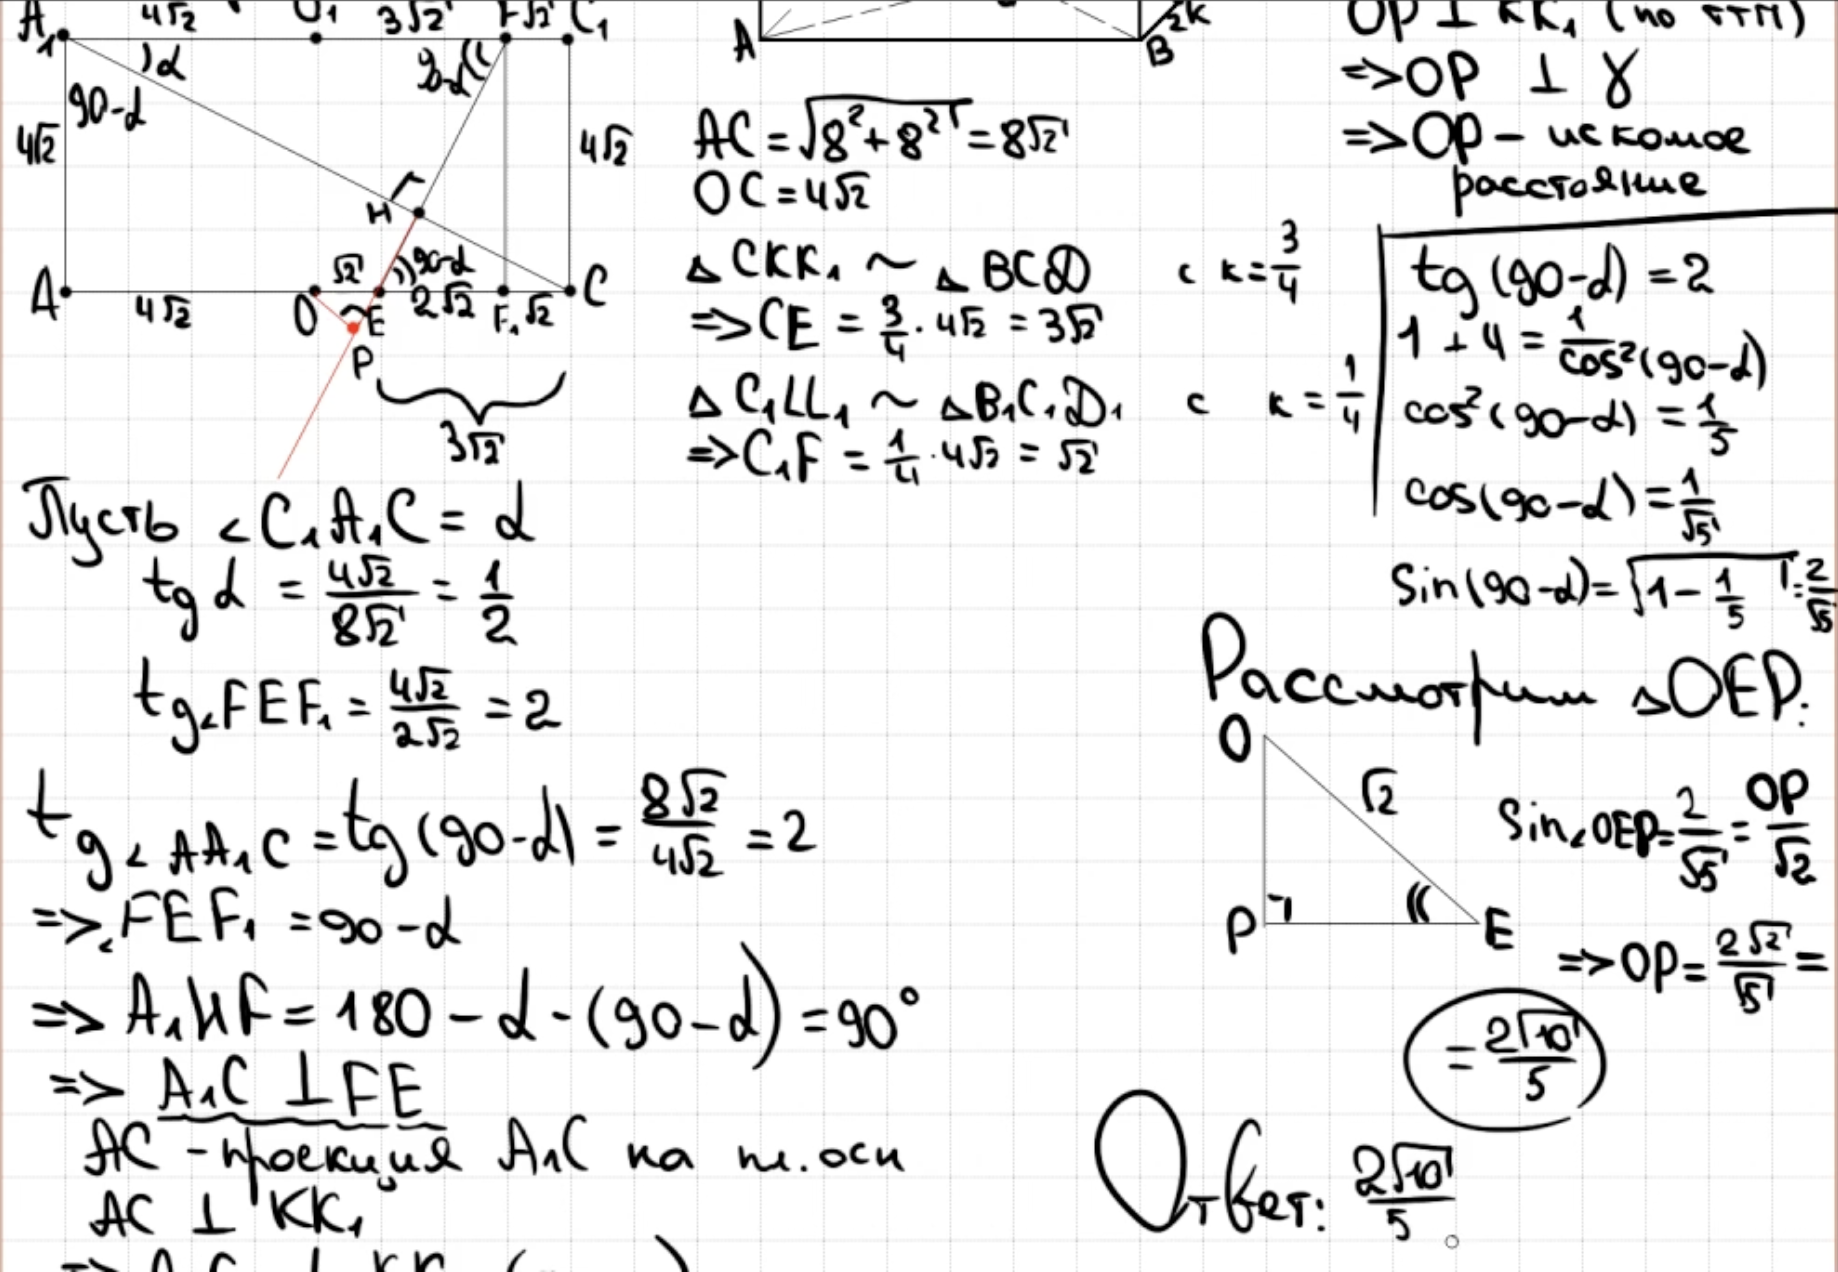 A₁ 4√2 O₁ 3√2 F √2 C₁
α
90-α
90-α
4√2
4√2
H
√2
90-α
A 4√2 O E 2√2 F₁ √2 C
P
3√2
A B 2K
AC = √8²+8² = 8√2
OC = 4√2
△ CKK₁ ~ △ BCD с к = 3/4
=> CE = 3/4 · 4√2 = 3√2
△ C₁LL₁ ~ △B₁C₁D₁ с к = 1/4
=> C₁F = 1/4 · 4√2 = √2
OP ⊥ KK₁ (по ттп)
=> OP ⊥ γ
=> OP - искомое
расстояние
tg (90-α) = 2
1 + 4 = 1/cos²(90-α)
cos²(90-α) = 1/5
cos(90-α) = 1/√5
Sin(90-α) = √1 - 1/5 = 2/√5
Пусть ∠ C₁A₁C = α
tg α = 4√2/8√2 = 1/2
tg∠FEF₁ = 4√2/2√2 = 2
tg∠AA₁C = tg(90-α) = 8√2/4√2 = 2
=> ∠FEF₁ = 90-α
=> A₁HF = 180 - α - (90-α) = 90°
=> A₁C ⊥ FE
AC - проекция A₁C на пл. осн
AC ⊥ KK₁
Рассмотрим △OEP:
O
√2
P E
Sin∠OEP = 2/√5 = OP/√2
=> OP = 2√2/√5 =
= 2√10/5
Ответ: 2√10/5